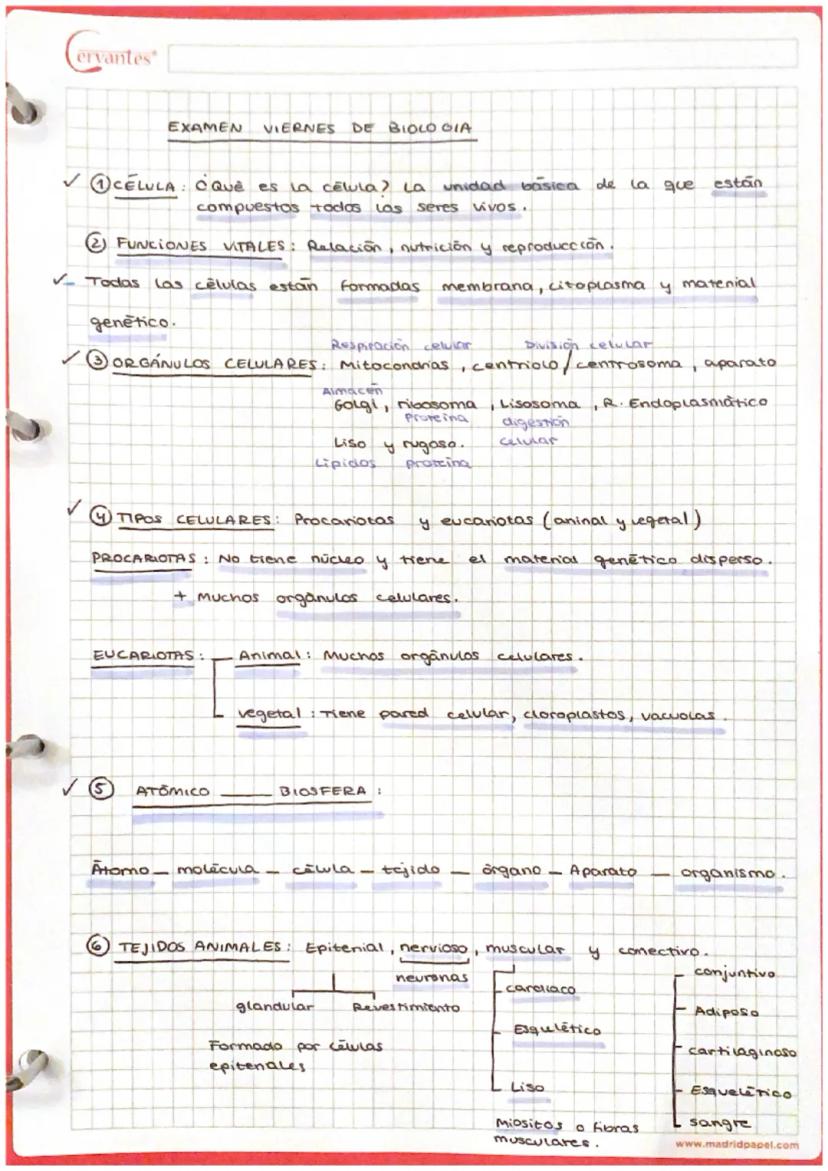 Cervantes
EXAMEN VIERNES DE BIOLOGIA
✓ ① CÉLULA: ¿Qué es la célula? La unidad básica de la que están
compuestos todos los seres vivos.
② FUNCIONES VITALES: Relación, nutrición y reproducción.
✓- Todas las células están formadas membrana, citoplasma y material
genético.
Respiración celular División celular
✓ ③ ORGÁNULOS CELULARES: Mitocondrias, centriolo/centrosoma, aparato
Almacén
Golgi, ribosoma, Lisosoma, R. Endoplasmático
Proteina digestión
Liso y rugoso. celular
Lípidos proteina
✓ ④ TIPOS CELULARES: Procariotas y eucariotas (aninal y vegetal)
PROCARIOTAS: No tiene núcleo y tiene el material genético disperso.
+ Muchos orgánulos celulares.
EUCARIOTAS: Animal: Muchos orgánulos celulares.
vegetal: Tiene pared celular, cloroplastos, vacuolas.
✓ ⑤ ATÓMICO ___ BIOSFERA:
Átomo - molécula - célula - tejido - órgano - Aparato - organismo.
⑥ TEJIDOS ANIMALES: Epitenial, nervioso, muscular y conectivo.
neuronas cardiaco conjuntivo
glandular Revestimiento Adiposo
Esquelético
Formado por células cartilaginoso
epitenales
Liso Esquelético
Miositos o fibras sangre
musculares.
www.madridpapel.com